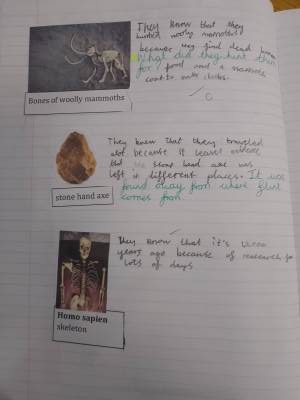 They know that they
hunted woolly mammoths
because they find dead
What did they hunt them
for? food and a mammoth
coat to make
Bones of woolly mammoths
They knew that they traveled
alot because it
that the stone hand axe was
left in different places. It was
found away from where flint
comes from.
stone hand axe
They know that it's
years ago because of research for
lots of days
Homo sapien
skeleton